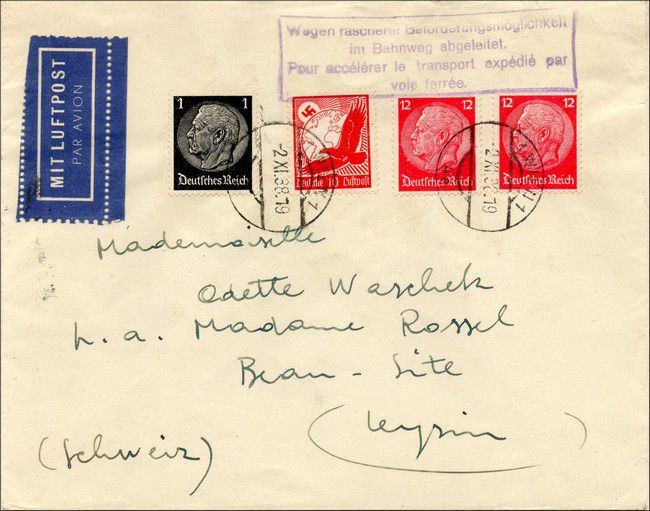 Wegen rascherer Beförderungsmöglichkeit
im Bahnweg abgeleitet.
Pour accélérer le transport expédié par
voie ferrée.
MIT LUFTPOST
PAR AVION
1
Deutsches Reich
Deutsche 10 Luftpost
12 12
Deutsches Reich
12 12
Deutsches Reich
-2.XI.38.19
-2.XI.38.19
Mademoiselle
Odette Waschek
h. a. Madame Rossel
Beau-Site
(Leysin)
(Schweiz)